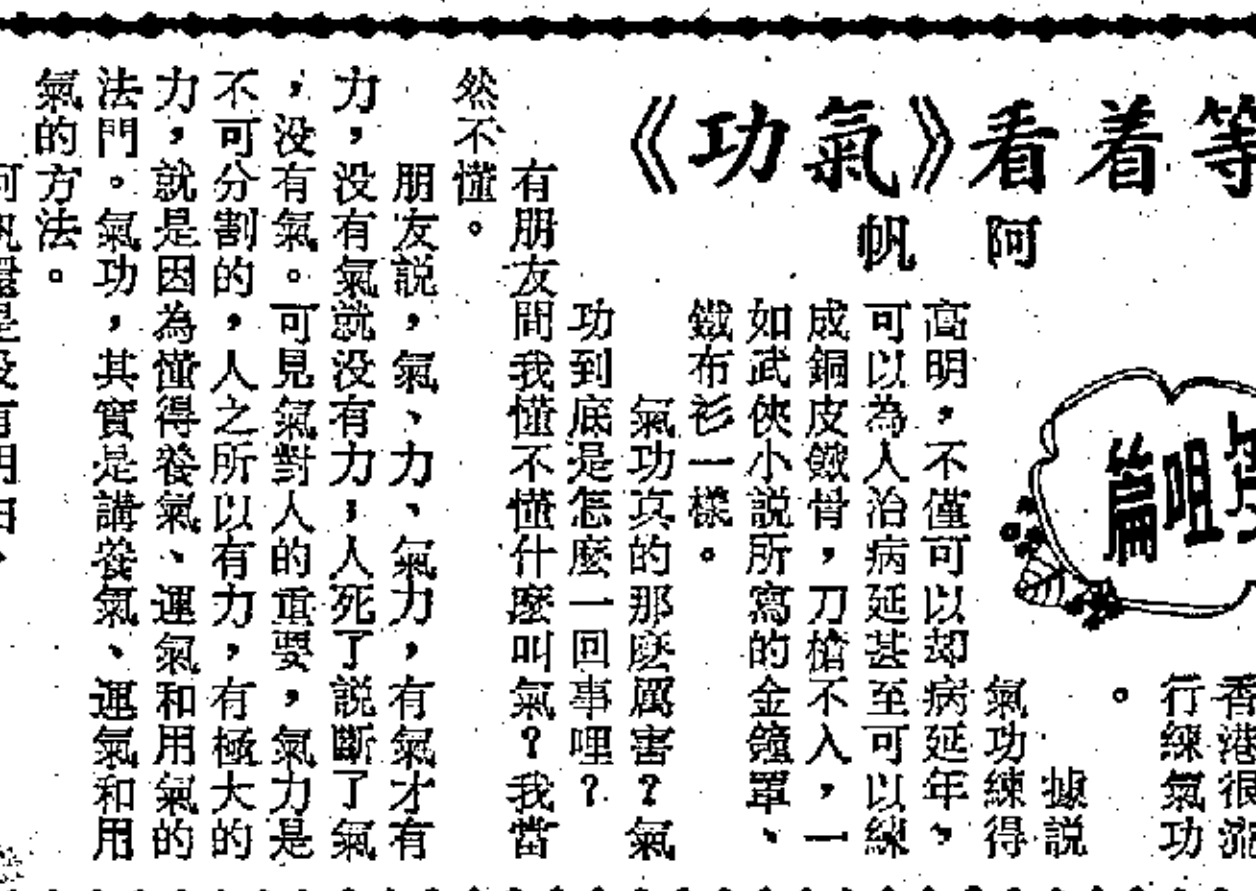 等着看《氣功》
阿帆
咀篇
香港很流
行練氣功
。
據説
氣功練得
高明，不僅可以却病延年，
可以為人治病延甚至可以練
成銅皮鐵骨，刀槍不入，一
如武俠小説所寫的金鐘罩、
鐵布衫一樣。
氣功真的那麽厲害？氣
功到底是怎麽一回事哩？
有朋友問我懂不懂什麽叫氣？我當
然不懂。
朋友説，氣、力、氣力，有氣才有
力，没有氣就没有力；人死了説斷了氣
，没有氣。可見氣對人的重要，氣力是
不可分割的，人之所以有力，有極大的
力，就是因為懂得養氣、運氣和用氣的
法門。氣功，其實是講養氣、運氣和用
氣的方法。
還是没有明白